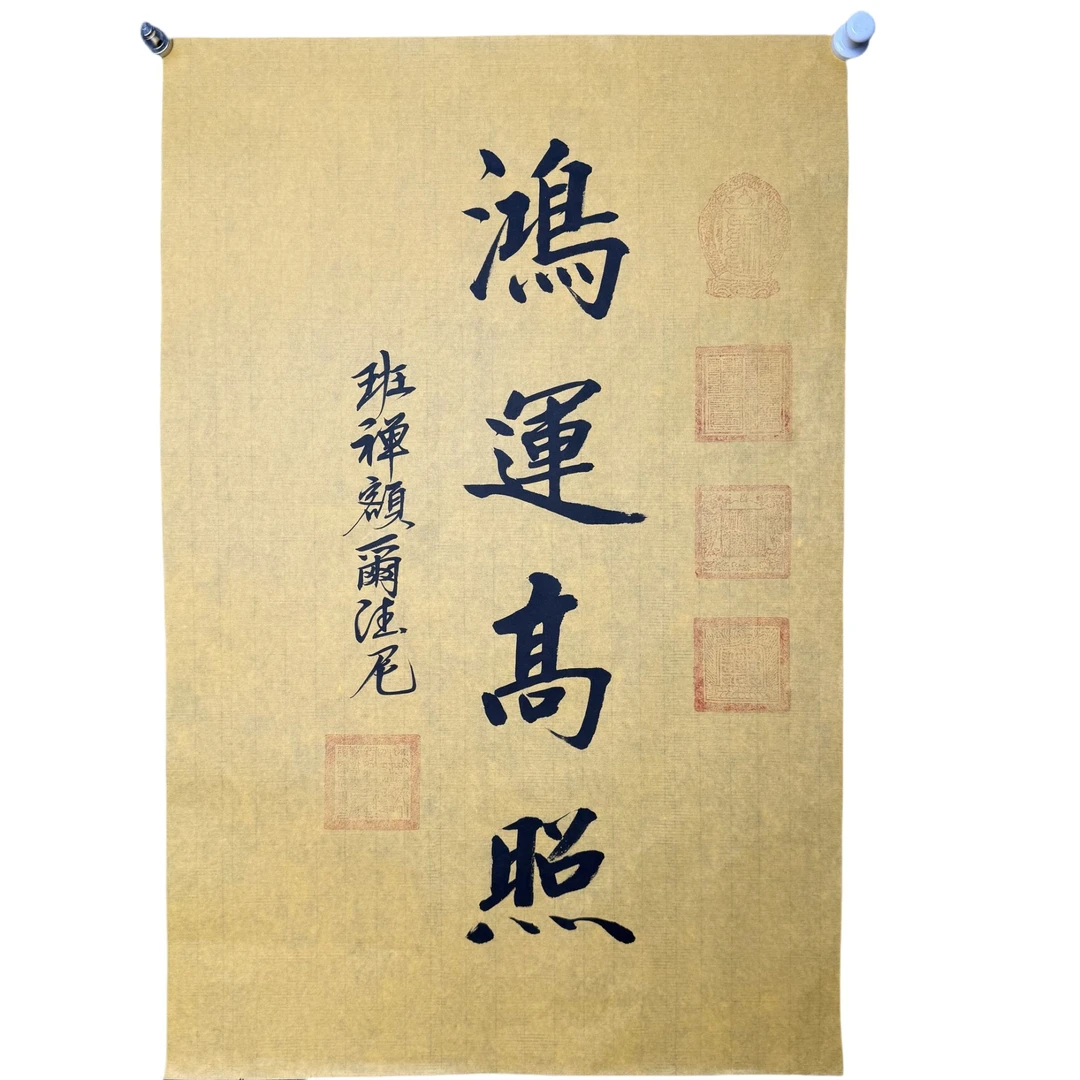 鴻運高照
班禅額爾德尼